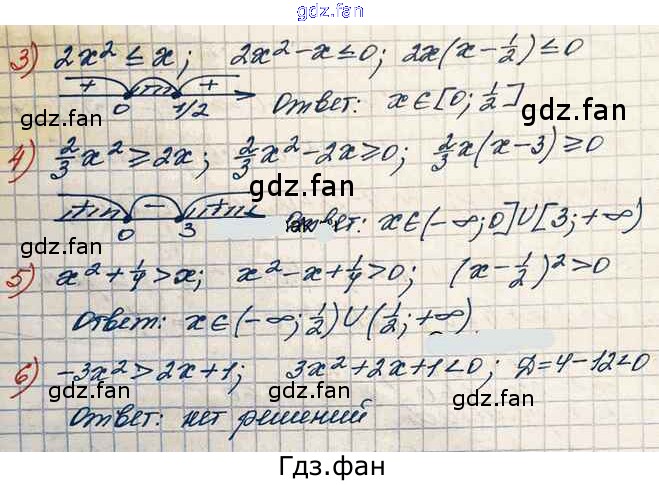 gdz.fan
3) 2x² ≤ x; 2x² - x ≤ 0; 2x(x - 1/2) ≤ 0
+ - + 0 1/2 Ответ: x ∈ [0; 1/2]
gdz.fan gdz.fan
4) 2/3 x² ≥ 2x; 2/3 x² - 2x ≥ 0; 2/3 x(x - 3) ≥ 0
gdz.fan
+ - + 0 3 Ответ: x ∈ (-∞; 0] ∪ [3; +∞)
5) x² + 1/4 > x; x² - x + 1/4 > 0; (x - 1/2)² > 0
gdz.fan gdz.fan
Ответ: x ∈ (-∞; 1/2) ∪ (1/2; +∞)
gdz.fan
6) -3x² > 2x + 1; 3x² + 2x + 1 < 0; Д = 4 - 12 < 0
gdz.fan gdz.fan
Ответ: нет решений
gdz.fan
Гдз.фан